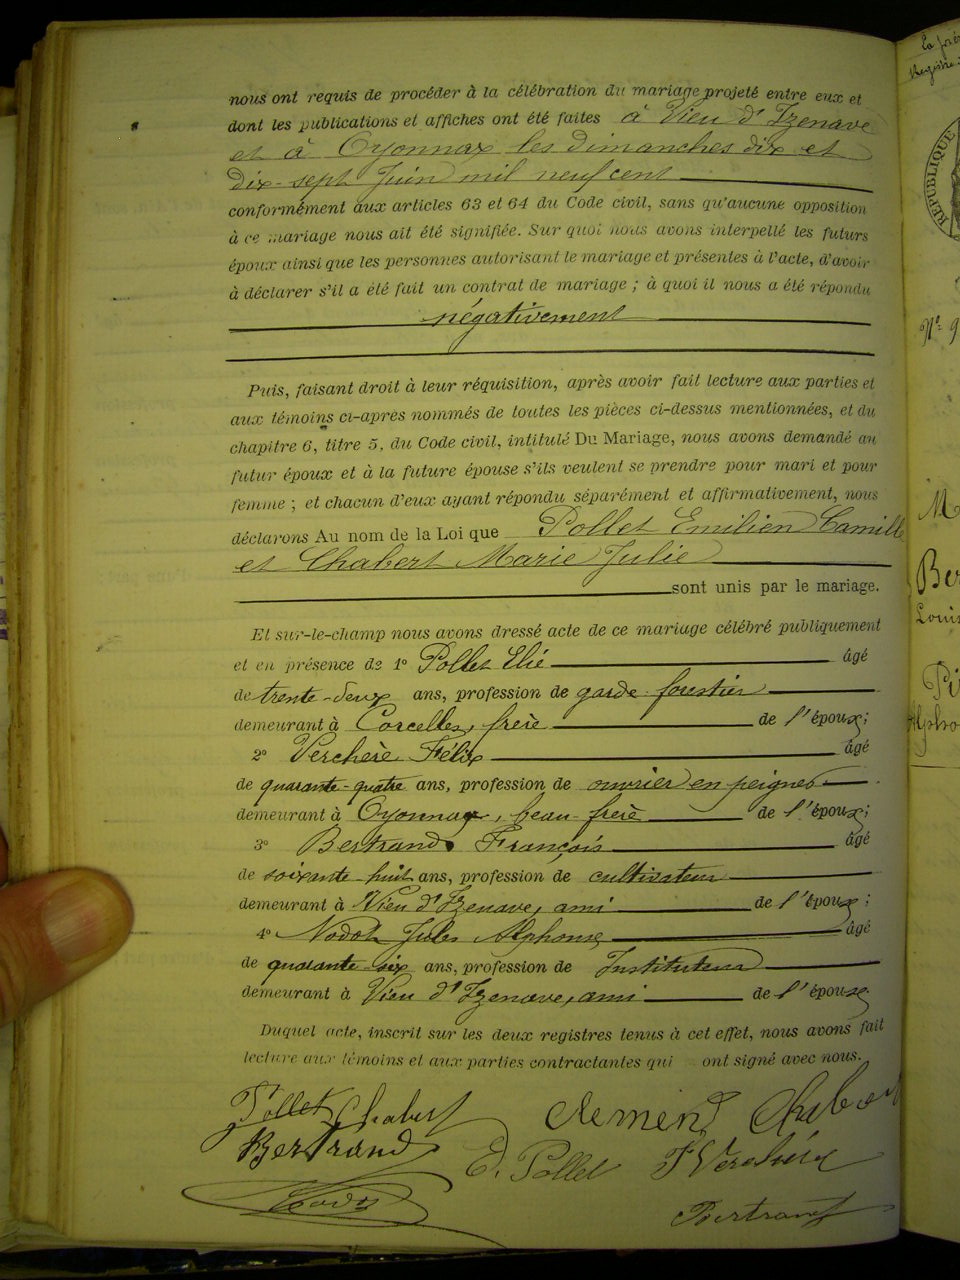 nous ont requis de procéder à la célébration du mariage projeté entre eux et
dont les publications et affiches ont été faites à Vieu d'Izenave
et à Oyonnax les dimanches dix et
dix-sept Juin mil neuf cent
conformément aux articles 63 et 64 du Code civil, sans qu'aucune opposition
à ce mariage nous ait été signifiée. Sur quoi nous avons interpellé les futurs
époux ainsi que les personnes autorisant le mariage et présentes à l'acte, d'avoir
à déclarer s'il a été fait un contrat de mariage ; à quoi il nous a été répondu
négativement
Puis, faisant droit à leur réquisition, après avoir fait lecture aux parties et
aux témoins ci-apres nommés de toutes les pièces ci-dessus mentionnées, et du
chapitre 6, titre 5, du Code civil, intitulé Du Mariage, nous avons demandé au
futur époux et à la future épouse s'ils veulent se prendre pour mari et pour
femme ; et chacun d'eux ayant répondu séparément et affirmativement, nous
déclarons Au nom de la Loi que Pollet Emilien Camille
et Chabert Marie Julie
sont unis par le mariage.
Et sur-le-champ nous avons dressé acte de ce mariage célébré publiquement
et en présence de 1° Pollet Elie âgé
de trente-deux ans, profession de garde-forestier
demeurant à Corcelles, frère de l'époux ;
2° Verchère Félix âgé
de quarante-quatre ans, profession de ouvrier en peignes
demeurant à Oyonnax, beau-frère de l'époux ;
3° Bertrand François âgé
de soixante-huit ans, profession de cultivateur
demeurant à Vieu d'Izenave, ami de l'époux ;
4° Nodot Jules Alphonse âgé
de quarante-six ans, profession de Instituteur
demeurant à Vieu d'Izenave, ami de l'époux
Duquel acte, inscrit sur les deux registres tenus à cet effet, nous avons fait
lecture aux témoins et aux parties contractantes qui ont signé avec nous.
Pollet Chabert Clement Chabert
Bertrand E. Pollet F Verchère
Nodot
Bertrand
RÉPUBLIQUE
N° 9
M
Ber
Louis
Pi
Alpho